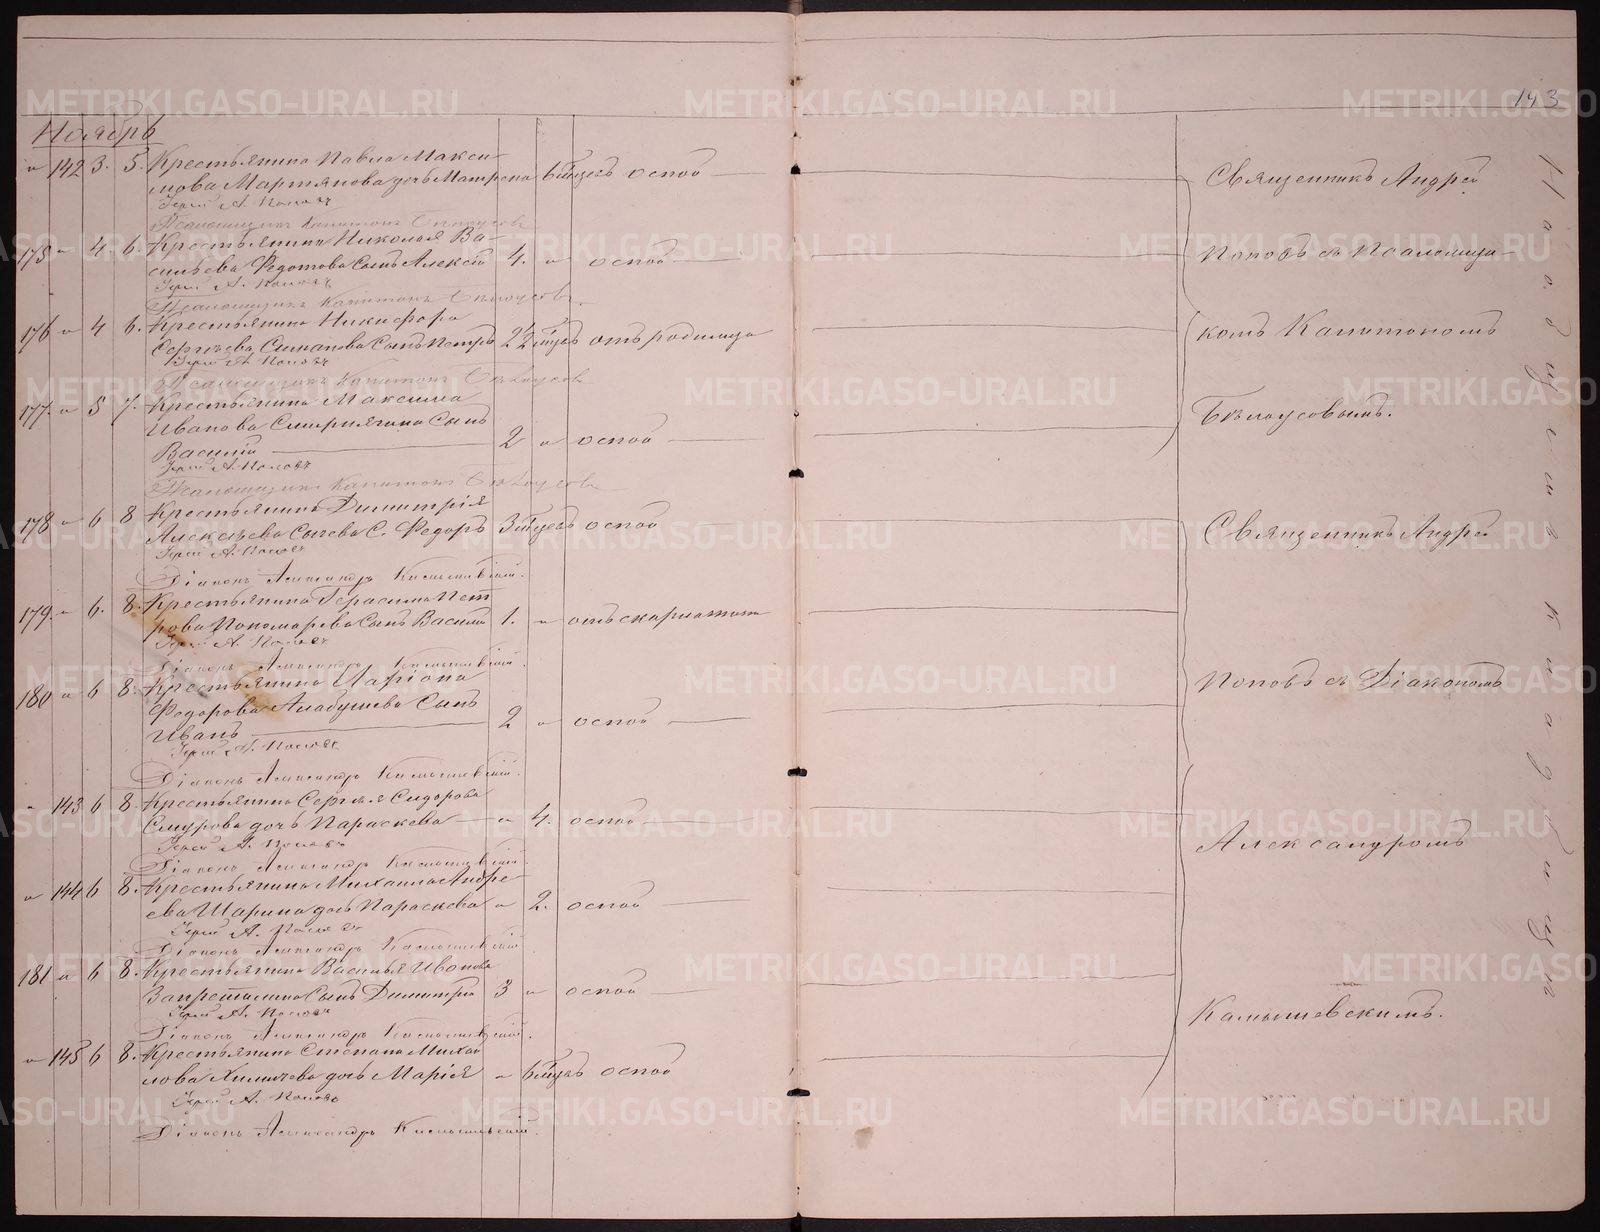 143
Ноябрь
" 142 3. 5. Крестьянина Павла Макси-
мова Мартянова дочь Матрена 6 мцевъ оспой
Іерей А. Поповъ
Псаломщикъ Капитонъ Бѣлоусовъ
175 " 4 6. Крестьянина Николая Ва-
сильева Федотова Сынъ Алексѣй 4. " оспой
Іерей А. Поповъ
Псаломщикъ Капитонъ Бѣлоусовъ.
176 " 4 6. Крестьянина Никифора
Сергѣева Сынъ Петръ отъ родимца
Іерей А. Поповъ
Псаломщикъ Капитонъ Бѣлоусовъ
177. " 5 7. Крестьянина Максима
Иванова Смирнягина Сынъ
Василій 2 " оспой
Іерей А. Поповъ
Псаломщикъ Капитонъ Бѣлоусовъ
178 " 6 8 Крестьянина Димитрія
Алексѣева Сычева С. Федоръ 3 мцевъ оспой
Іерей А. Поповъ
Діаконъ Александръ Камышевскій.
179. " 6. 8. Крестьянина Герасима Пет
рова Пономарева Сынъ Василій 1. " отъ скарлатины
Іерей А. Поповъ
Діаконъ Александръ Камышевскій.
180 " 6 8. Крестьянина Ларіона
Федорова Алабушева Сынъ
Иванъ 2 " оспой
Іерей А. Поповъ
Діаконъ Александръ Камышевскій.
" 143 6 8. Крестьянина Сергѣя Сидорова
дочь Параскева " 4. оспой
Іерей А. Поповъ
Діаконъ Александръ Камышевскій.
" 144 6 8. Крестьянина Михаила Андре-
ева Шарина дочь Параскева " 2. оспой
Іерей А. Поповъ
Діаконъ Александръ Камышевскій
181 " 6 8. Крестьянина Василья Иванова
Сынъ Димитрій 3 " оспой
Іерей А. Поповъ
Діаконъ Александръ Камышевскій.
" 145 6 8. Крестьянина Степана Михай
лова дочь Марія " 6 мцевъ оспой
Іерей А. Поповъ
Діаконъ Александръ Камышевскій.
Священникъ Андрей
Поповъ съ Псаломщи-
комъ Капитономъ
Бѣлоусовымъ.
Священникъ Андрей
Поповъ съ Діакономъ
Александромъ
Камышевскимъ.
На общемъ кладбищѣ
METRIKI.GASO-URAL.RU